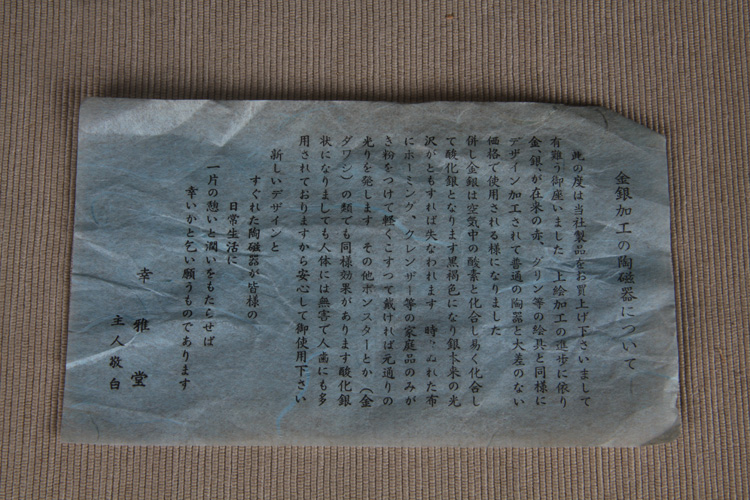 金銀加工の陶磁器について
此の度は当社製品をお買上げ下さいまして
有難う御座いました　上絵加工の進歩に依り
金、銀が在来の赤、グリン等の絵具と同様に
デザイン加工されて普通の陶器と大差のない
価格で使用される様になりました
併し金銀は空気中の酸素と化合し易く化合し
て酸化銀となります黒褐色になり銀本来の光
沢がともすれば失なわれます　時々ぬれた布
にホーミング、クレンザー等の家庭品のみが
き粉をつけて軽くこすつて戴ければ元通りの
光りを発します　その他ボンスターとか（金
ダワシ）の類でも同様効果があります酸化銀
状になりましても人体には無害で人歯にも多
用されておりますから安心して御使用下さい
新しいデザインと
すぐれた陶磁器が皆様の
日常生活に
一片の憩いと潤いをもたらせば
幸いかと乞い願うものであります
幸雅堂
主人敬白